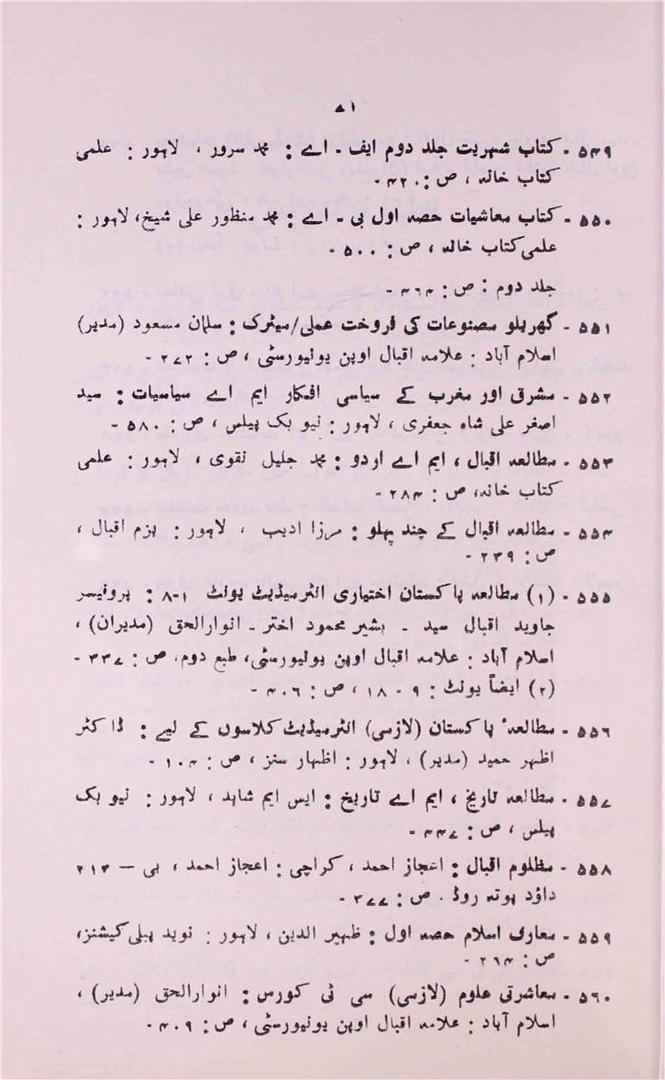 ۷۱
۵۴۹ - کتاب شہریت جلد دوم ایف - اے : محمد سرور ، لاہور : علمی
کتاب خانہ ، ص : ۴۲۰ -
۵۵۰ - کتاب معاشیات حصہ اول بی - اے : محمد منظور علی شیخ، لاہور :
علمی کتاب خانہ ، ص : ۵۰۰ -
جلد دوم : ص : ۴۶۴ -
۵۵۱ - گھریلو مصنوعات کی فروخت عملی/میٹرک : سلمان مسعود (مدیر)
اسلام آباد : علامہ اقبال اوپن یونیورسٹی ، ص : ۲۷۲ -
۵۵۲ - مشرق اور مغرب کے سیاسی افکار ایم اے سیاسیات : سید
اصغر علی شاہ جعفری ، لاہور : نیو بک پیلس ، ص : ۵۸۰ -
۵۵۳ - مطالعہ اقبال ، ایم اے اردو : محمد جلیل نقوی ، لاہور : علمی
کتاب خانہ، ص : ۲۸۴ -
۵۵۴ - مطالعہ اقبال کے چند پہلو : مرزا ادیب ، لاہور : بزم اقبال ،
ص : ۲۳۹ -
۵۵۵ - (۱) مطالعہ پاکستان اختیاری انٹرمیڈیٹ یونٹ ۱-۸ : پروفیسر
جاوید اقبال سید - بشیر محمود اختر - انوارالحق (مدیران) ،
اسلام آباد : علامہ اقبال اوپن یونیورسٹی، طبع دوم، ص : ۳۳۷ -
(۲) ایضاً یونٹ : ۹ - ۱۸ ، ص : ۴۰۶ -
۵۵۶ - مطالعۂ پاکستان (لازمی) انٹرمیڈیٹ کلاسوں کے لیے : ڈاکٹر
اظہر حمید (مدیر) ، لاہور : اظہار سنز ، ص : ۱۰۴ -
۵۵۷ - مطالعہ تاریخ ، ایم اے تاریخ : ایس ایم شاہد ، لاہور : نیو بک
پیلس ، ص : ۴۴۷ -
۵۵۸ - مظلوم اقبال : اعجاز احمد ، کراچی : اعجاز احمد ، بی – ۲۱۳
داؤد پوتہ روڈ . ص : ۳۷۷ -
۵۵۹ - معارف اسلام حصہ اول : ظہیر الدین ، لاہور : نوید پبلی کیشنز،
ص : ۲۶۴ -
۵۶۰ - معاشرتی علوم (لازمی) سی ٹی کورس : انوارالحق (مدیر) ،
اسلام آباد : علامہ اقبال اوپن یونیورسٹی ، ص : ۴۰۹ -